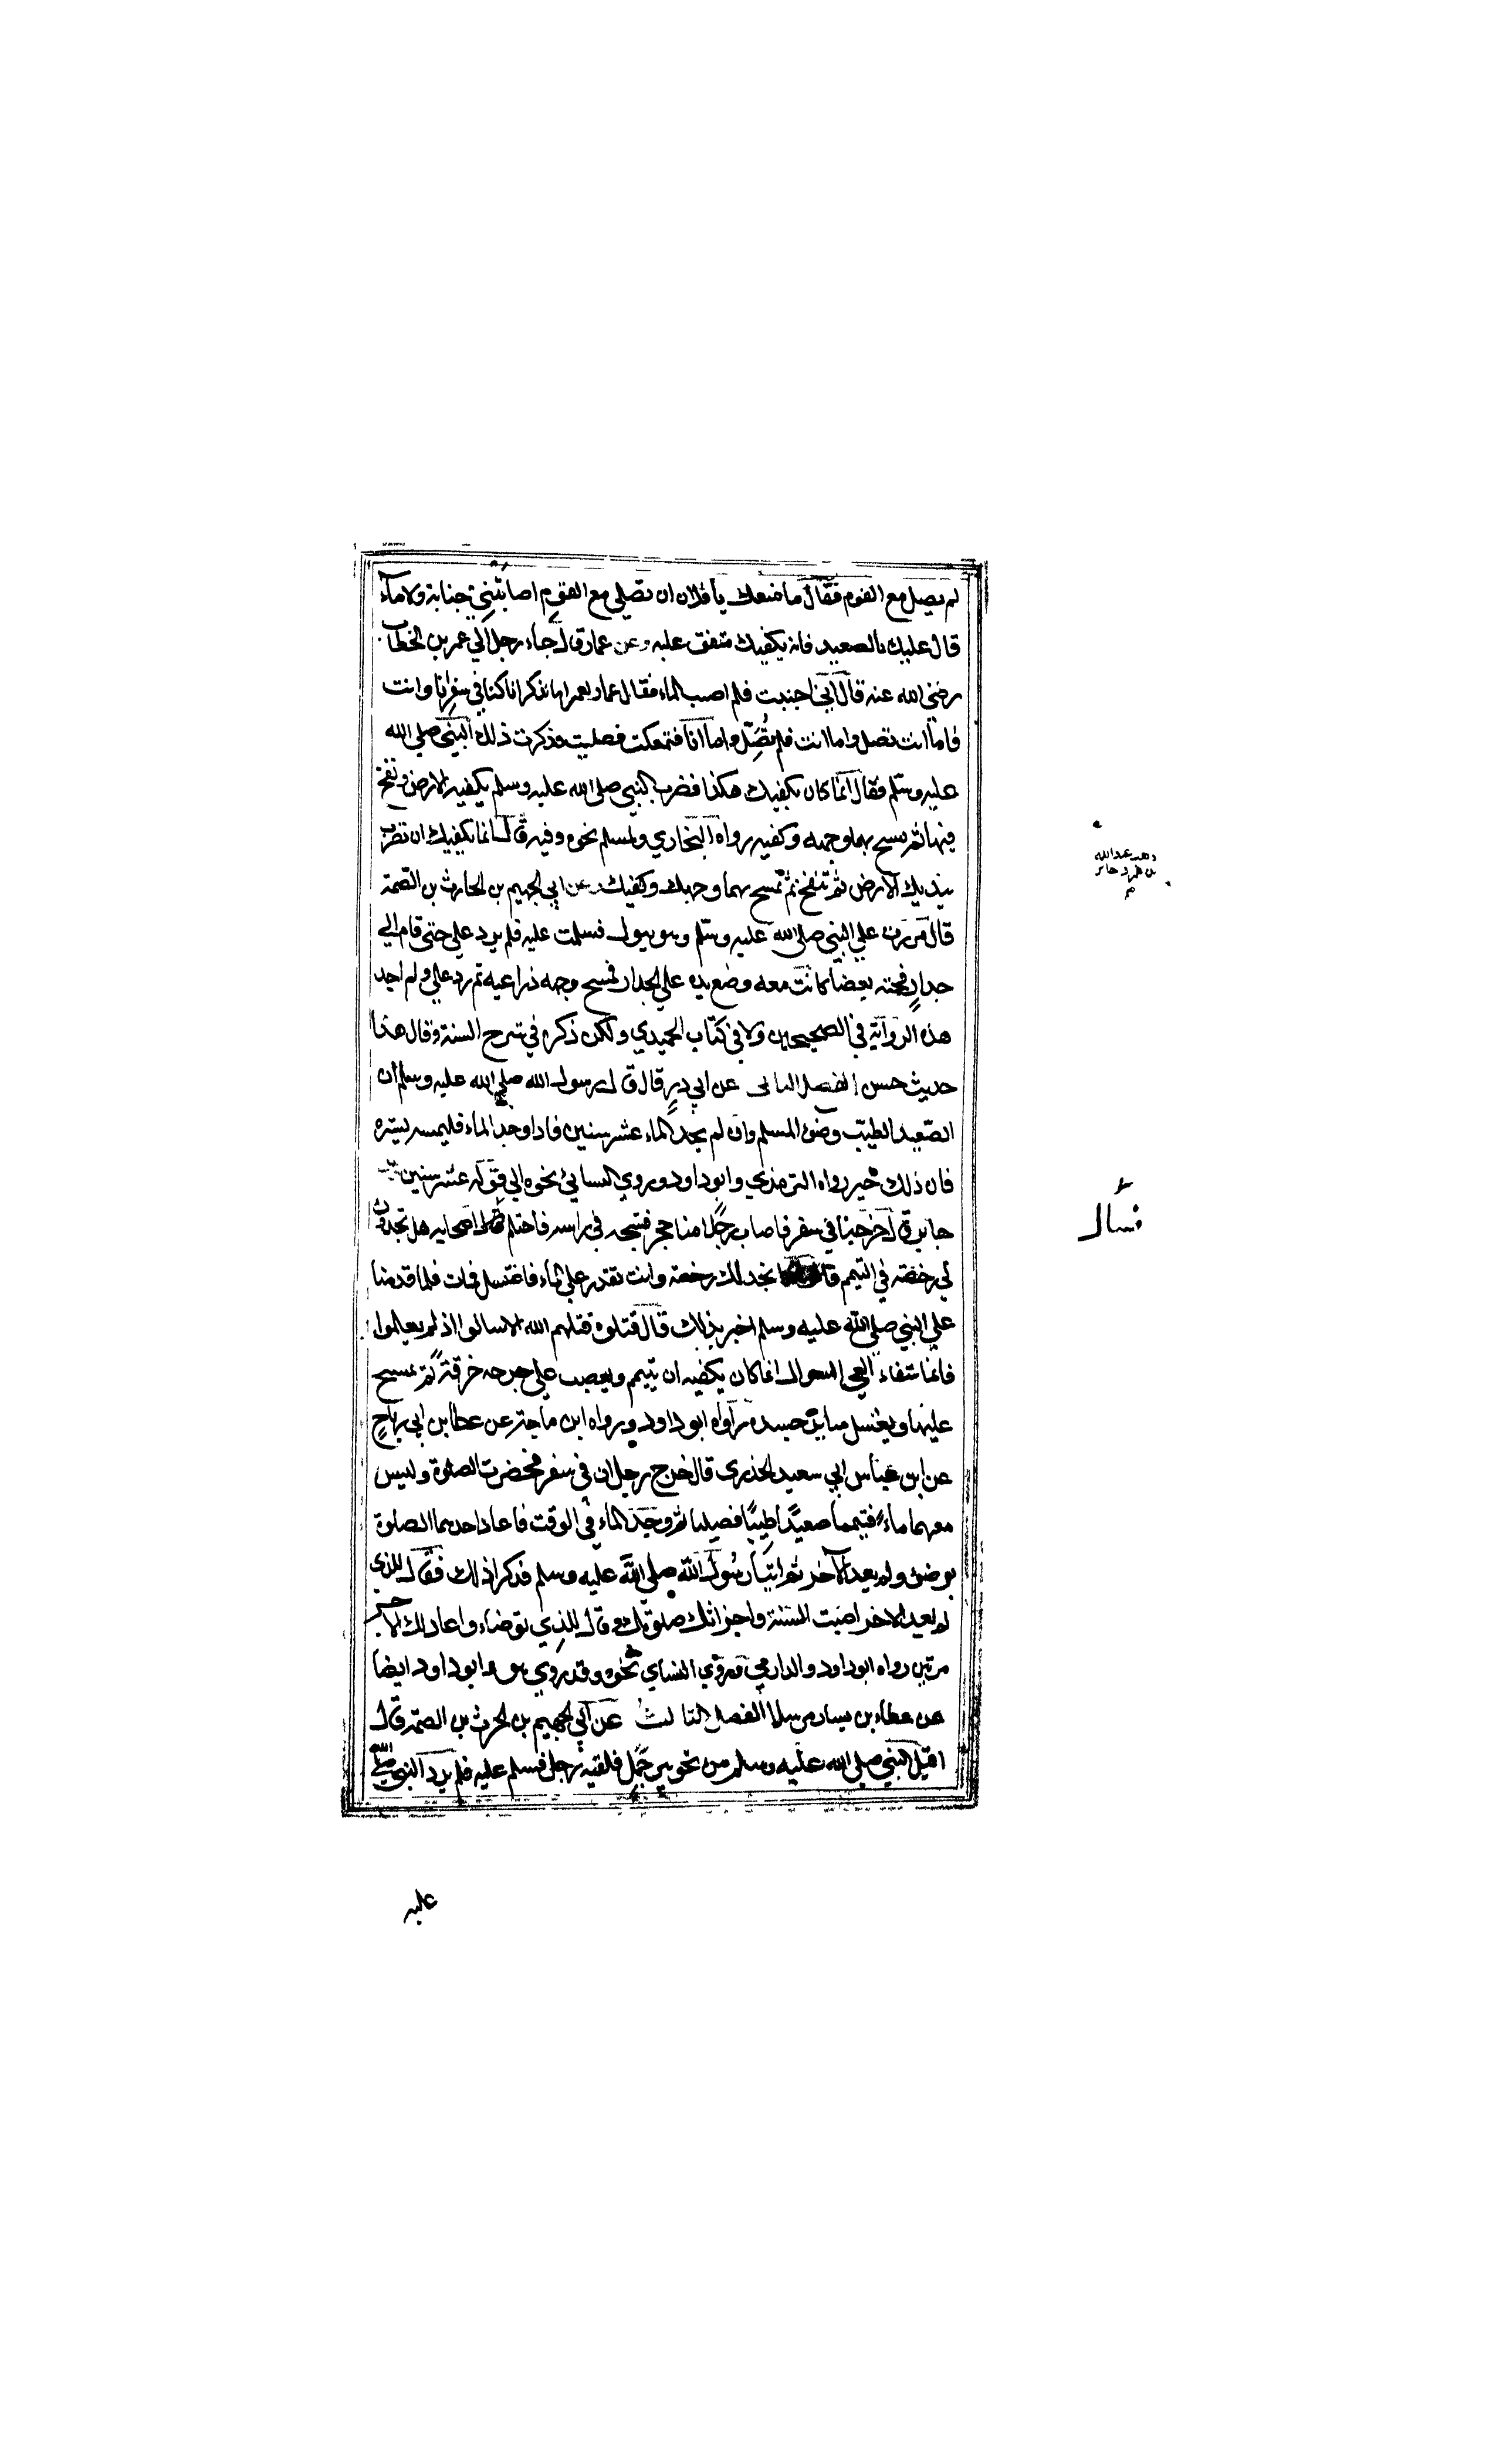 لم يصل مع القوم فقال ما منعك يا فلان ان تصلي مع القوم اصابتني جنابة ولا ماء
قال عليك بالصعيد فانه يكفيك متفق عليه وعن عمار قال جاء رجل الي عمر بن الخطاب
رضي الله عنه قال اني اجنبت فلم اصب الماء فقال عمار لعمر اما تذكر انا كنا في سفر انا وانت
فاما انت تصل واما انت فلم تصل واما انا فتمعكت فصليت وذكرت ذلك النبي صلي الله
عليه وسلم فقال انما كان يكفيك هكذا فضرب النبي صلي الله عليه وسلم بكفيه الارض ونفخ
فيها ثم مسح بهما وجهه وكفيه رواه البخاري ولمسلم نحوه وفيه قال انما يكفيك ان تضرب
بيديك الارض ثم تنفخ ثم تمسح بهما وجهك وكفيك وعن ابي الجهيم بن الحارث بن الصمة
قال مررت علي النبي صلي الله عليه وسلم وهو يبول فسلمت عليه فلم يرد علي حتي قام الي
جدار فحته بعضا كانت معه وضع يده علي الجدار فمسح وجهه ذراعيه ثم رد علي ولم اجد
هذه الرواية في الصحيحين ولا في كتاب الحميدي ولكن ذكره في شرح السنة وقال هذا
حديث حسن الفصل الثاني عن ابي ذر قال قال رسول الله صلي الله عليه وسلم ان
الصعيد الطيب وضوء المسلم وان لم يجد الماء عشر سنين فاذا وجد الماء فليمسه بشره
فان ذلك خير رواه الترمذي وابو داود وروي النسائي نحوه الي قوله عشر سنين
جابر قال خرجنا في سفر فاصاب رجلا منا حجر فشجه في راسه فاحتلم اصحابه هل تجدون
لي رخصة في التيمم نجد لك رخصة وانت تقدر علي الماء فاغتسل فمات فلما قدمنا
علي النبي صلي الله عليه وسلم اخبر بذلك قال قتلوه قتلهم الله الا سالوا اذ لم يعلموا
فانما شفاء العي السوال انما كان يكفيه ان يتيمم ويعصب علي جرحه خرقة ثم يمسح
عليها ويغسل سائر جسده رواه ابو داود ورواه ابن ماجة عن عطا بن ابي رباح
عن ابن عباس ابي سعيد الخذري قال خرج رجلان في سفر فحضرت الصلوة وليس
معهما ماء فتيمما صعيدا طيبا فصليا ثم وجد الماء في الوقت فاعاد احدهما الصلوة
بوضوء ولم يعد الاخر ثم اتيا رسول الله صلي الله عليه وسلم فذكرا ذلك فقال للذي
لم يعيد الاخر اصبت السنة واجزاتك صلوتك وقال للذي توضاء واعاد لك الاجر
مرتين رواه ابو داود والدارمي وروي النساي نحوه وقد روي هو وابو داود ايضا
عن عطاء بن يسار مرسلا الفصل الثالث عن ابي الجهيم بن الحرث بن الصمة قال
اقبل النبي صلي الله عليه وسلم من نحو بير جمل فلقيه رجل فسلم عليه فلم يرد النبي صلي الله
عليه
فسال